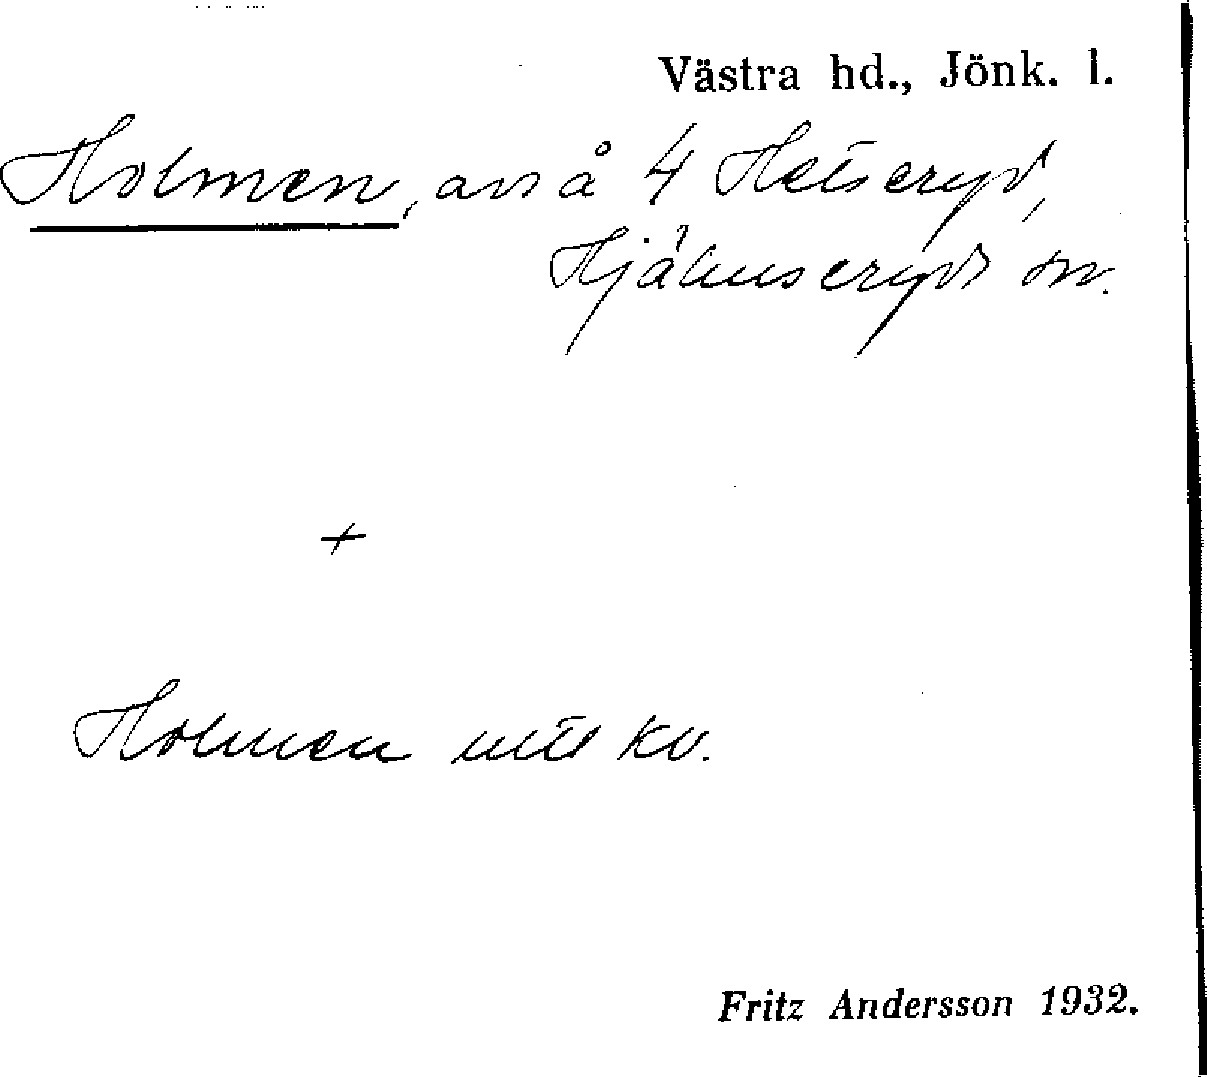 Västra hd., Jönk. l.
Holmen, avs å 4 Hetseryd,
Hjälmseryds sn.
+
Holmen utb kv.
Fritz Andersson 1932.